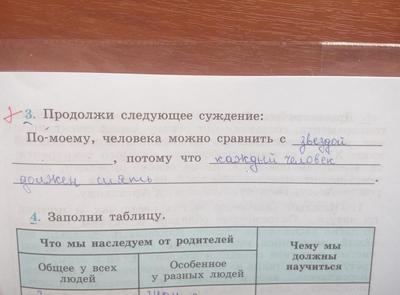 3. Продолжи следующее суждение:
По-моему, человека можно сравнить с звездой
, потому что каждый человек
должен сиять.
4. Заполни таблицу.
Что мы наследуем от родителей
Чему мы
должны
научиться
Общее у всех
людей
Особенное
у разных людей